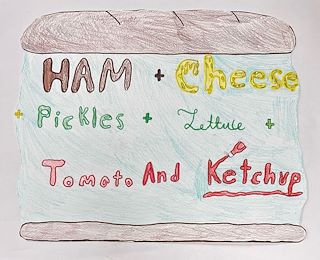 HAM + Cheese
+ Pickles + Lettuce +
Tomato And Ketchup